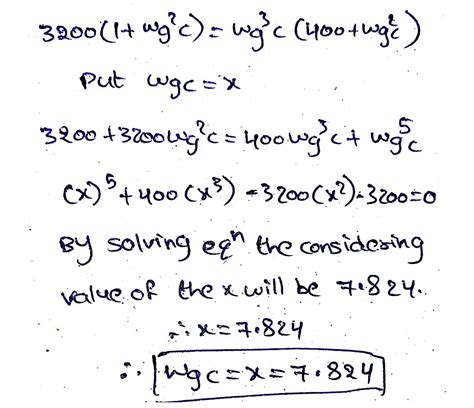 3200(1+wg²c) = wg³c (400+wg²c)
Put wgc = x
3200 + 3200wg²c = 400wg³c + wg⁵c
(x)⁵ + 400 (x³) - 3200(x²) - 3200 = 0
By solving eqⁿ the considering
value of the x will be 7.824.
∴ x = 7.824
∴ wgc = x = 7.824